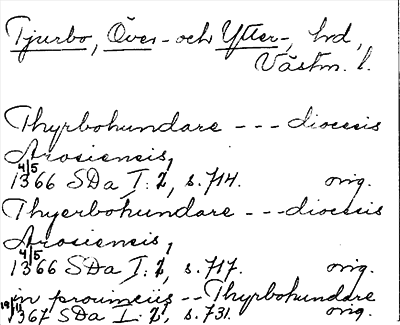 Tjurbo, Över- och Ytter-, hrd,
Västm. l.
Thyrbohundare --- diocesis
Arosiensis,
4/5
1366 SDa I: 2, s. 714. orig.
Thyerbohundare --- diocesis
Arosiensis,
4/5
1366 SDa I: 2, s. 717. orig.
in prouincijs -- Thyrbohundare
19/11
1367 SDa I: 2, s. 731. orig.